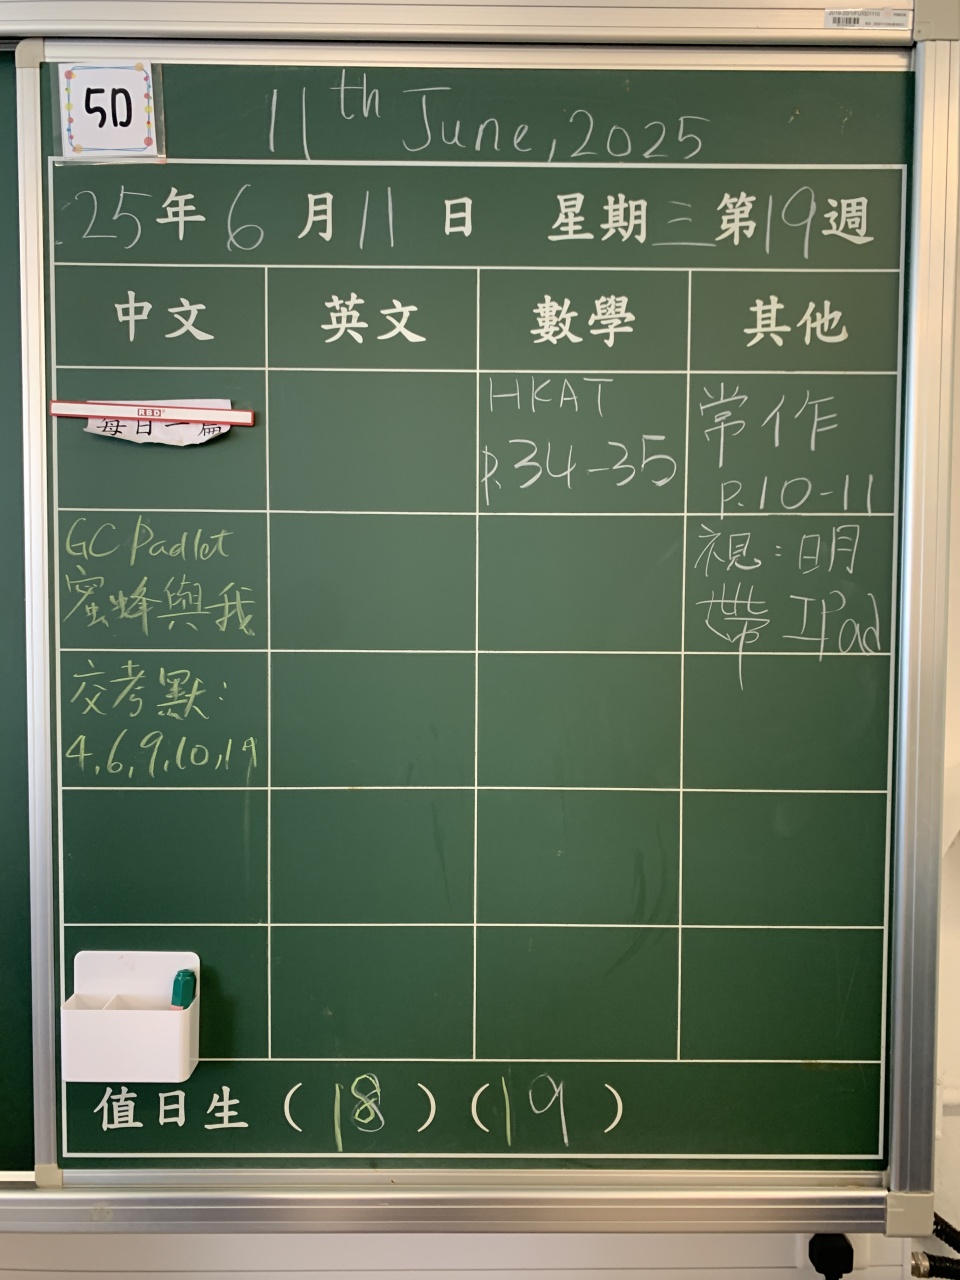 5D
11th June, 2025
25年6月11日 星期三第19週
中文 英文 數學 其他
RBD
每日一篇
HKAT
P.34-35
常作
P.10-11
GC Padlet
蜜蜂與我
視：明
帶 IPad
交考默：
4,6,9,10,19
值日生（18）（19）